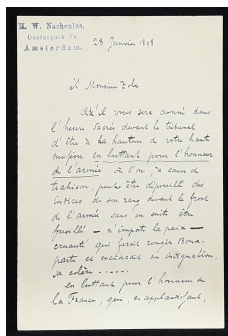 M. W. Nachenius,
Oosterpark
Amsterdam.
28 Janvier 1898
A Monsieur Zola
Qu'il vous sera donné dans
l'heure sacrée devant le tribunal
d'être à la hauteur de votre haute
mission en luttant pour l'honneur
de l'armée où l'on à cause de
trahison, peut être dépouillé des
insignes de son rang devant le front
de l'armée sans en suite être
fusillé — n'importe la paix —
cruauté qui ferait Bona-
parte indignation,
sa colère ......
en luttant pour l'honneur de
la France, qui, en applaudissant,